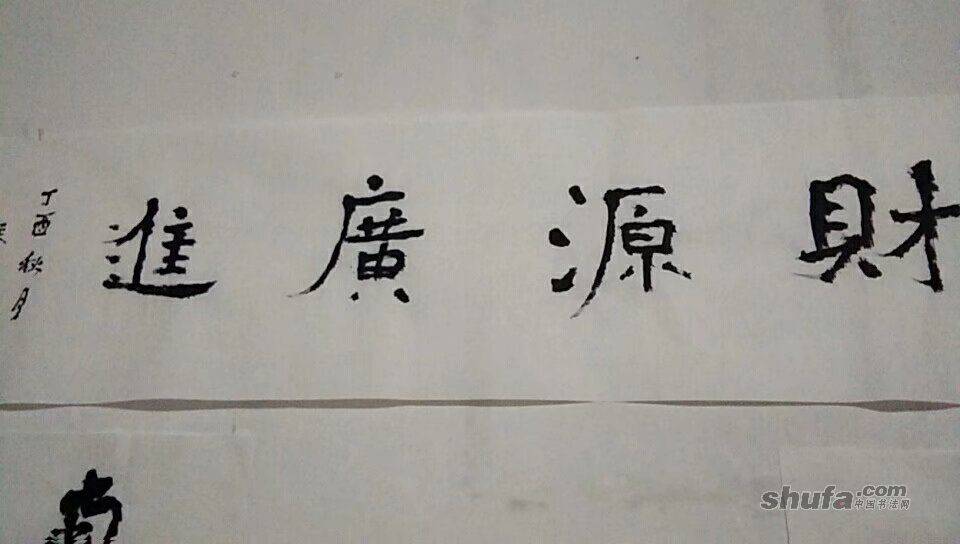 財源廣進
丁酉秋月
shufa.com
中国书法网